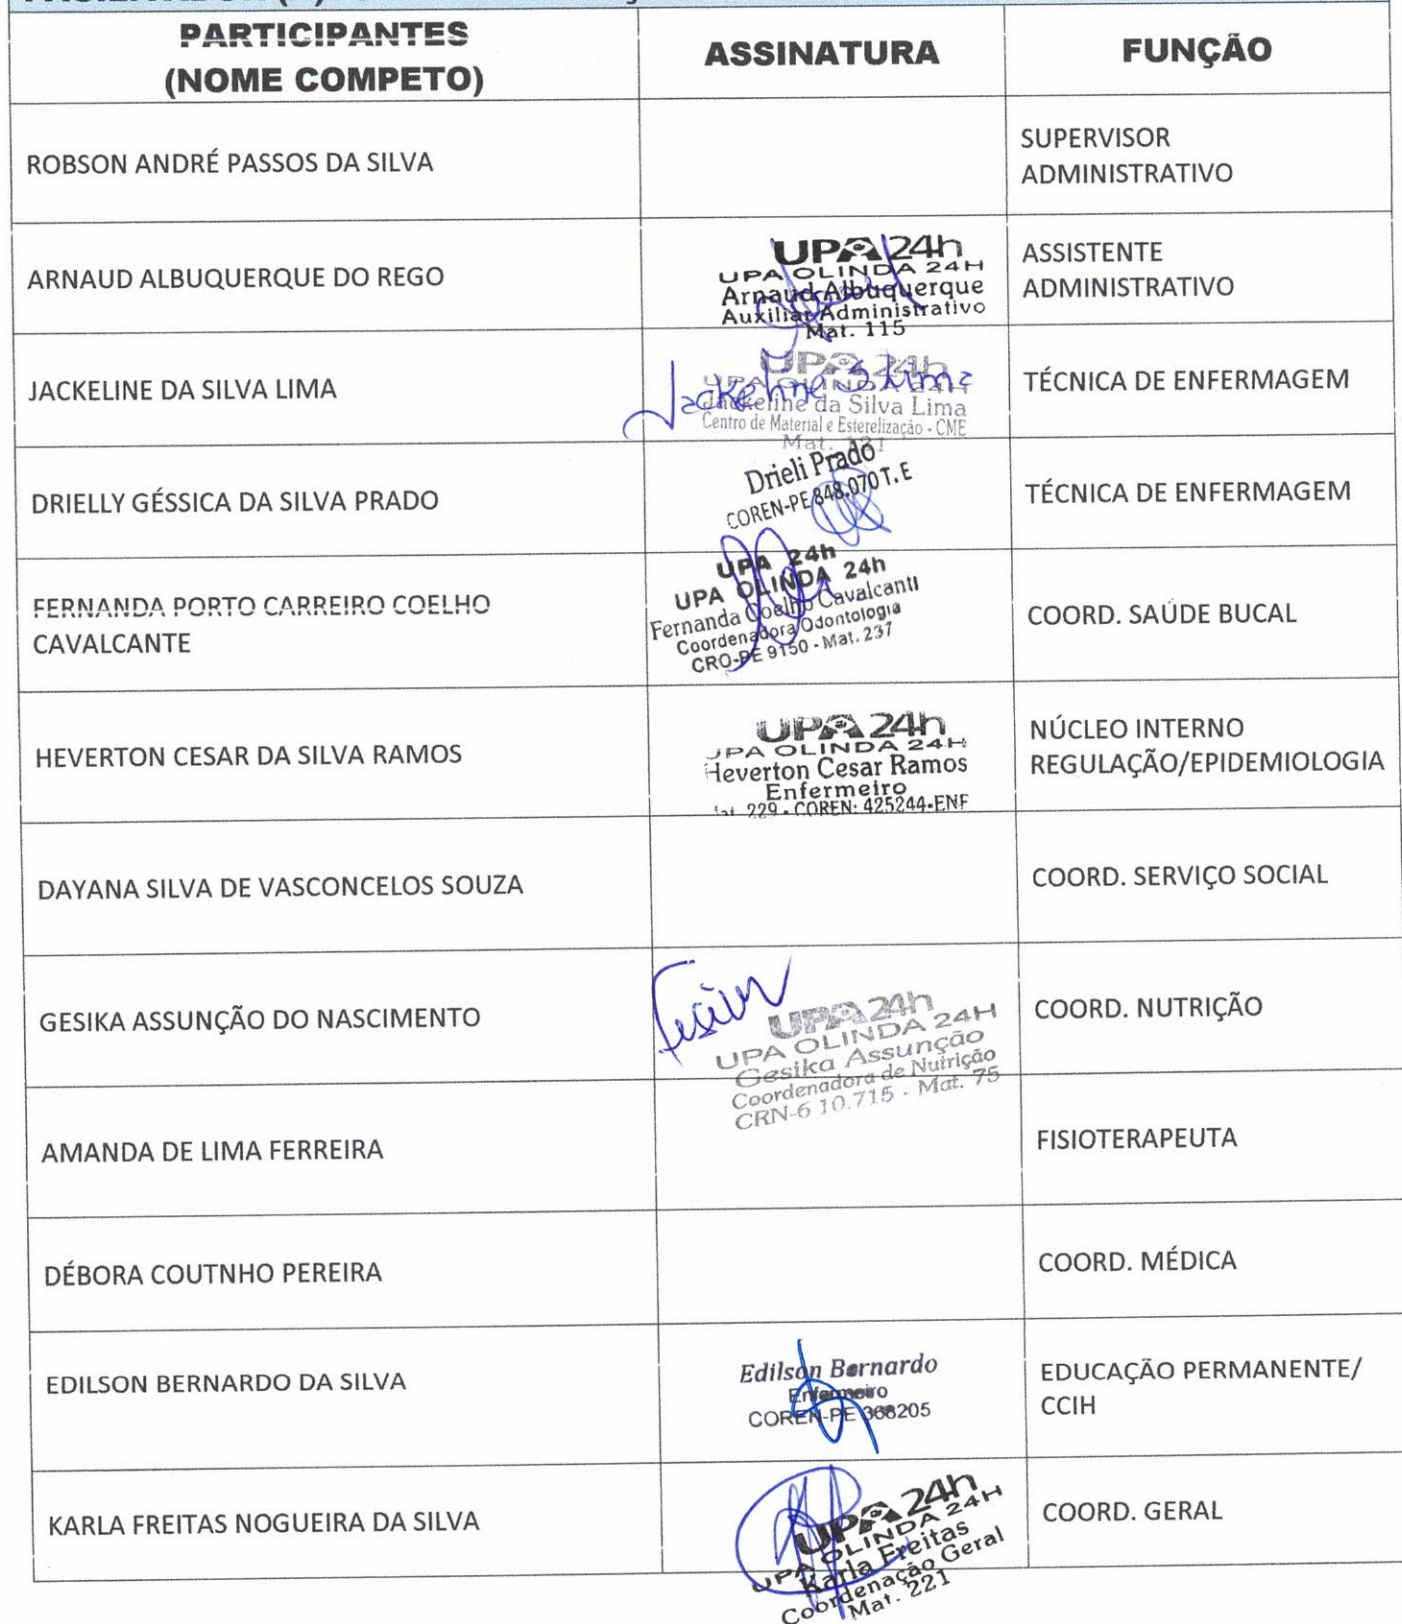 PARTICIPANTES
(NOME COMPETO)
ASSINATURA
FUNÇÃO
ROBSON ANDRÉ PASSOS DA SILVA
SUPERVISOR
ADMINISTRATIVO
ARNAUD ALBUQUERQUE DO REGO
UPA 24h
UPA OLINDA 24H
Arnaud Albuquerque
Auxiliar Administrativo
Mat. 115
ASSISTENTE
ADMINISTRATIVO
JACKELINE DA SILVA LIMA
UPA 24h
UPA OLINDA 24H
Jackeline da Silva Lima
Centro de Material e Esterelização - CME
Mat.
TÉCNICA DE ENFERMAGEM
DRIELLY GÉSSICA DA SILVA PRADO
Drieli Prado
COREN-PE 848.070 T.E
TÉCNICA DE ENFERMAGEM
FERNANDA PORTO CARREIRO COELHO
CAVALCANTE
UPA 24h
UPA OLINDA 24h
Fernanda Coelho Cavalcanti
Coordenadora Odontologia
CRO-PE 9150 - Mat. 237
COORD. SAÚDE BUCAL
HEVERTON CESAR DA SILVA RAMOS
UPA 24h
UPA OLINDA 24H
Heverton Cesar Ramos
Enfermeiro
Mat. 229 - COREN: 425244-ENF
NÚCLEO INTERNO
REGULAÇÃO/EPIDEMIOLOGIA
DAYANA SILVA DE VASCONCELOS SOUZA
COORD. SERVIÇO SOCIAL
GESIKA ASSUNÇÃO DO NASCIMENTO
UPA 24h
UPA OLINDA 24H
Gesika Assunção
Coordenadora de Nutrição
CRN-6 10.715 - Mat. 75
COORD. NUTRIÇÃO
AMANDA DE LIMA FERREIRA
FISIOTERAPEUTA
DÉBORA COUTNHO PEREIRA
COORD. MÉDICA
EDILSON BERNARDO DA SILVA
Edilson Bernardo
Enfermeiro
COREN-PE 368205
EDUCAÇÃO PERMANENTE/
CCIH
KARLA FREITAS NOGUEIRA DA SILVA
UPA 24h
UPA OLINDA 24H
Karla Freitas
Coordenação Geral
Mat. 221
COORD. GERAL